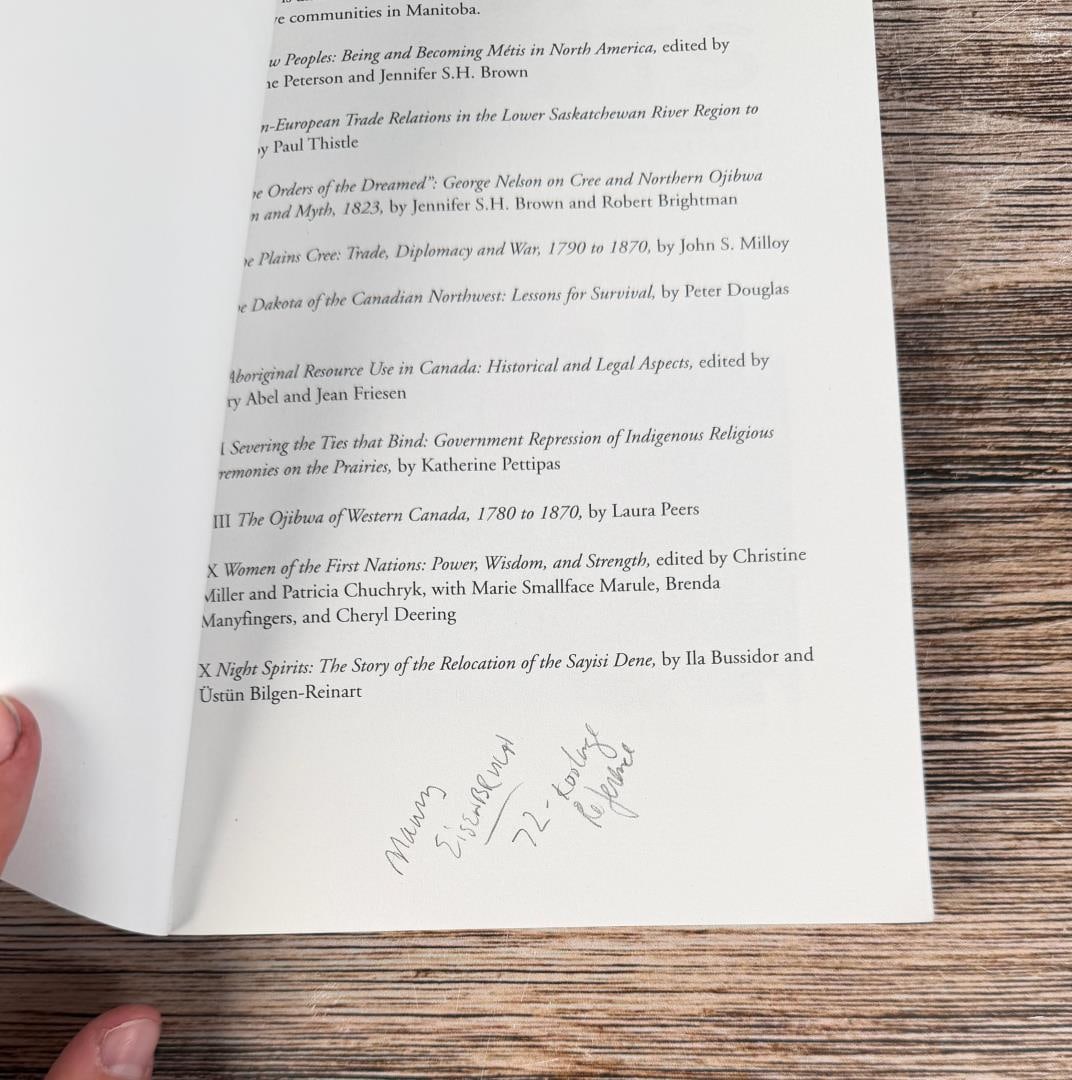 e communities in Manitoba.
w Peoples: Being and Becoming Métis in North America, edited by
ne Peterson and Jennifer S.H. Brown
n-European Trade Relations in the Lower Saskatchewan River Region to
y Paul Thistle
e Orders of the Dreamed": George Nelson on Cree and Northern Ojibwa
n and Myth, 1823, by Jennifer S.H. Brown and Robert Brightman
e Plains Cree: Trade, Diplomacy and War, 1790 to 1870, by John S. Milloy
e Dakota of the Canadian Northwest: Lessons for Survival, by Peter Douglas
Aboriginal Resource Use in Canada: Historical and Legal Aspects, edited by
ry Abel and Jean Friesen
I Severing the Ties that Bind: Government Repression of Indigenous Religious
remonies on the Prairies, by Katherine Pettipas
III The Ojibwa of Western Canada, 1780 to 1870, by Laura Peers
X Women of the First Nations: Power, Wisdom, and Strength, edited by Christine
Miller and Patricia Chuchryk, with Marie Smallface Marule, Brenda
Manyfingers, and Cheryl Deering
X Night Spirits: The Story of the Relocation of the Sayisi Dene, by Ila Bussidor and
Üstün Bilgen-Reinart
EISENBRUCH
72 -
Reference